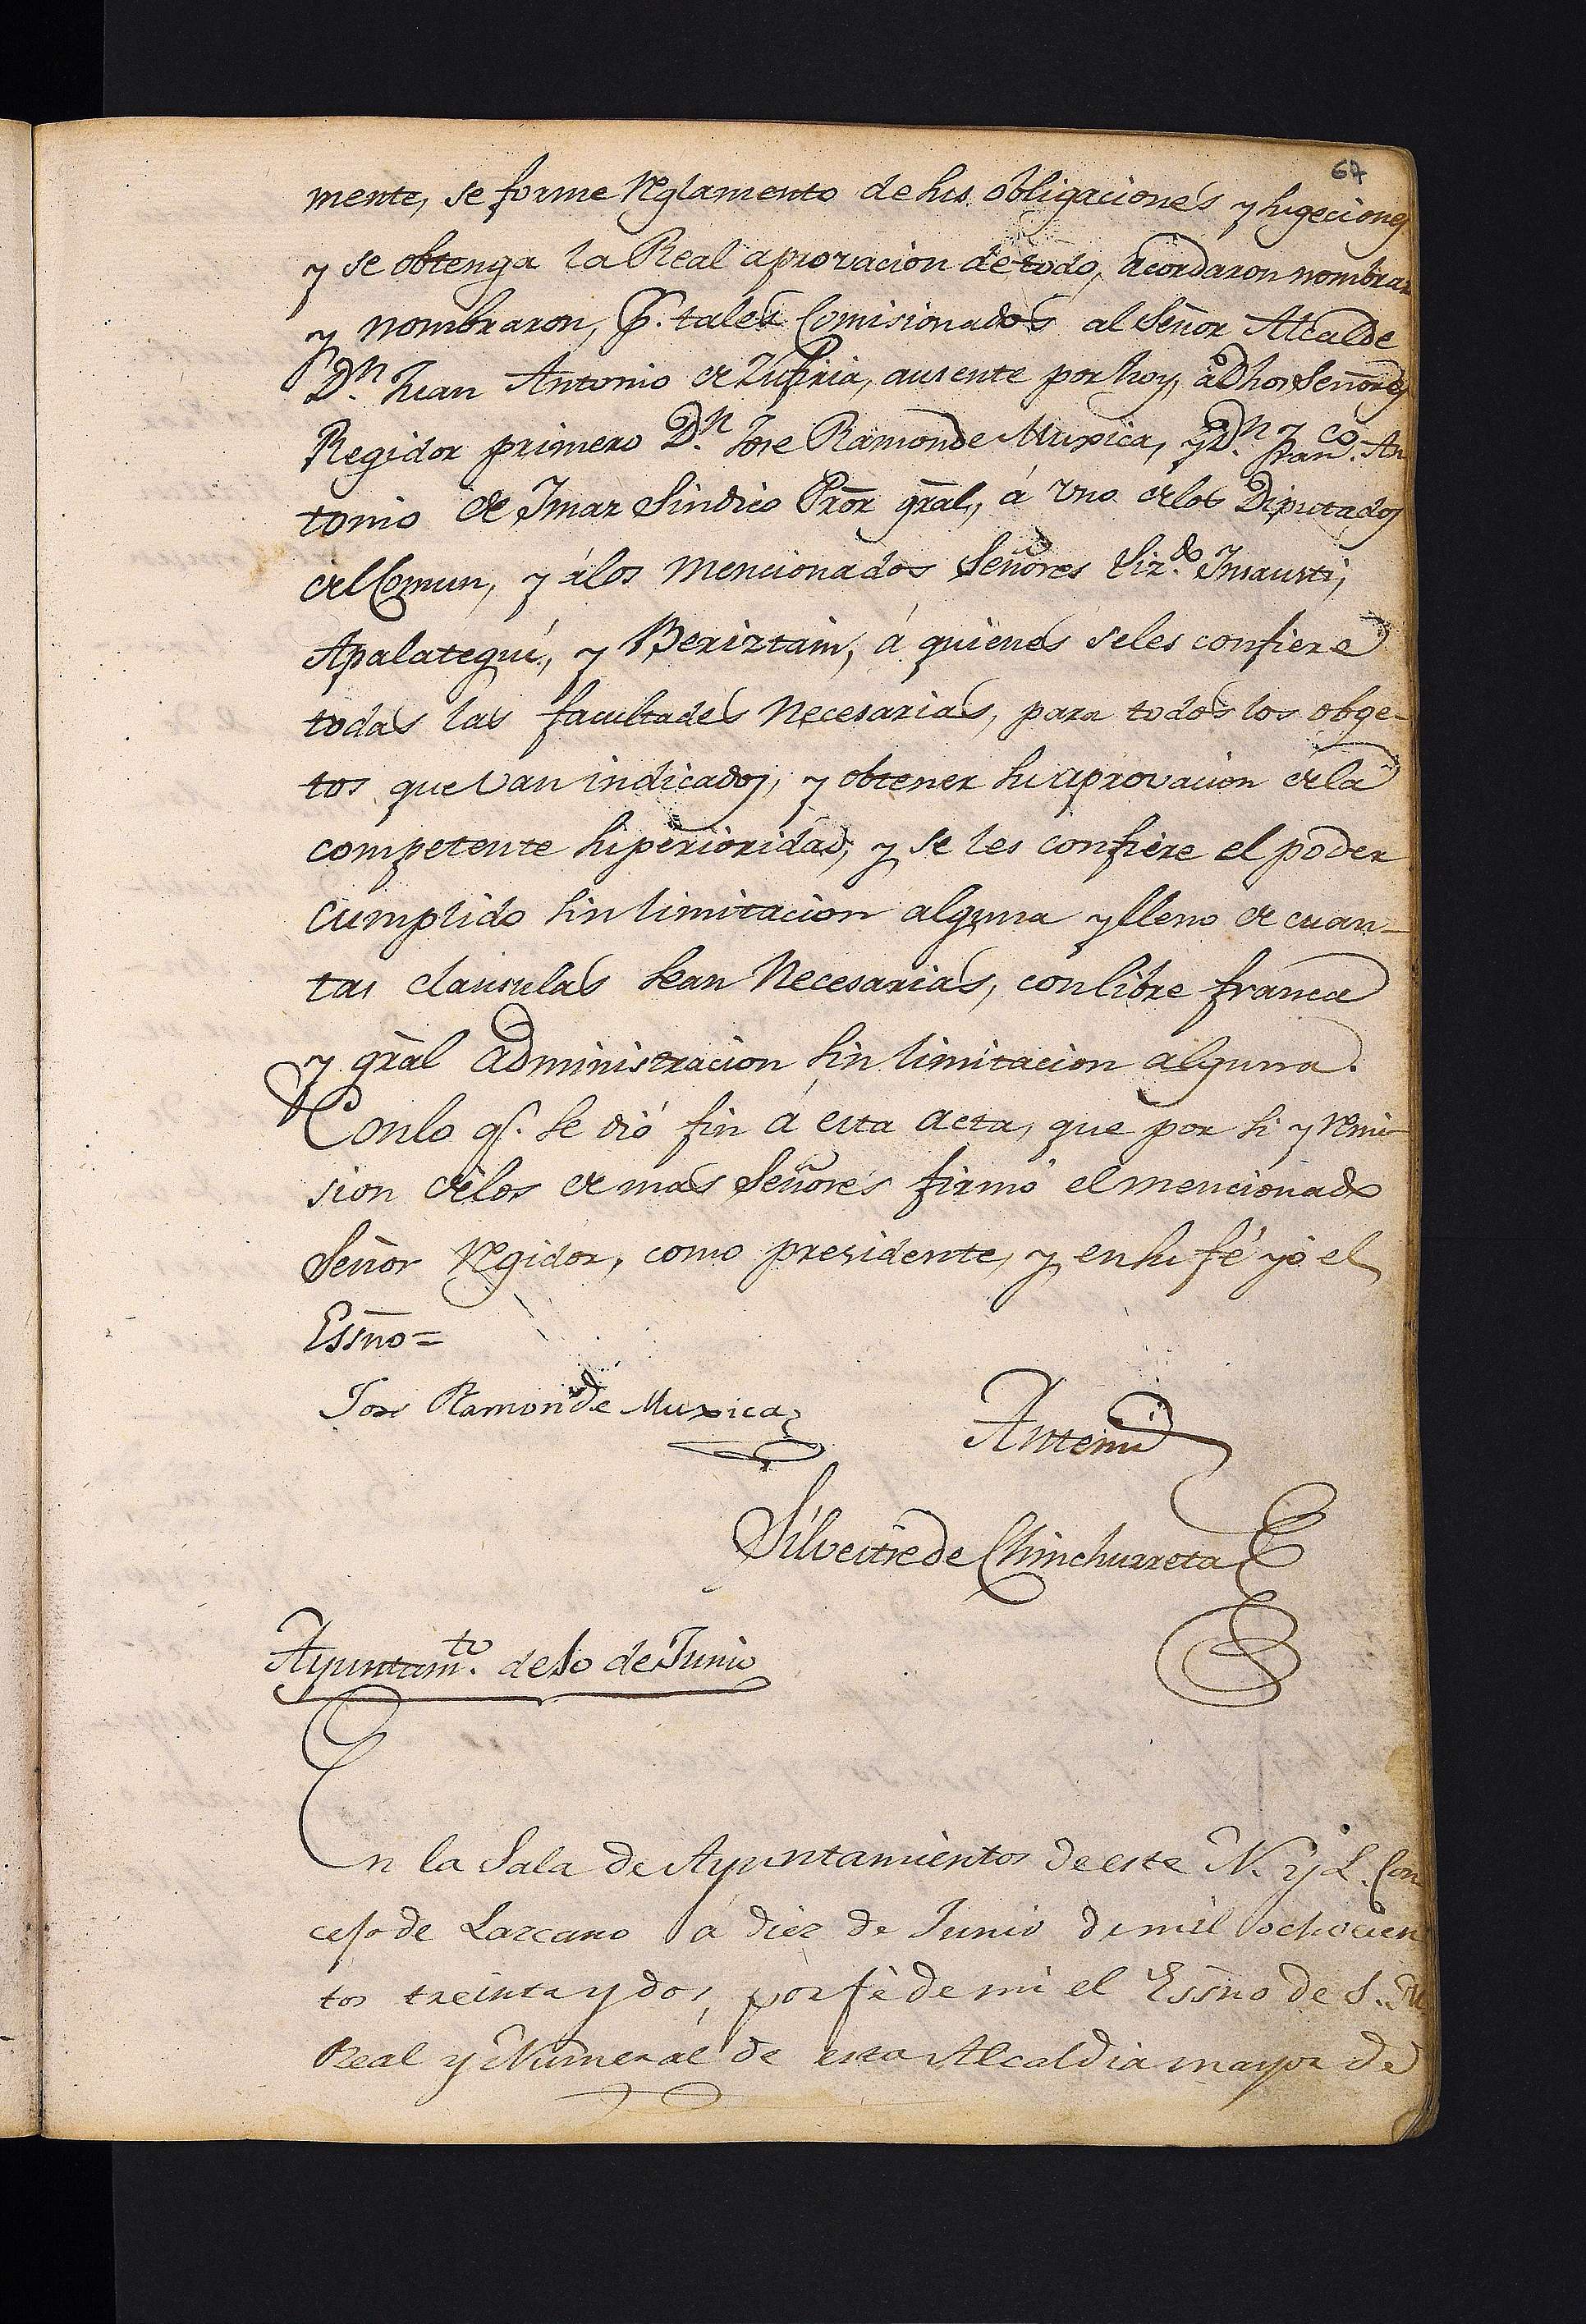 67
mente, se forme Reglamento de sus obligaciones y sugeciones
y se obtenga la Real aprovacion de todo, acordaron nombrar
y nombraron, p.r tales Comisionados al Señor Alcalde
D.n Juan Antonio de Zufiria, ausente por hoy, á dhos Señores
Regidor primero D.n Jose Ramon de Muxica, y D.n Fran.co An
tonio de Imaz Sindico Pror gral, á uno de los Diputados
del Comun, y á los mencionados Señores Insausti,
Apalategui, y Beriztain, á quienes seles confiere
todas las facultades necesarias, para todos los obge-
tos que van indicados, y obtener su aprovacion de la
competente superioridad; y se les confiere el poder
cumplido sin limitacion alguna y lleno de cuan-
tas clausulas sean necesarias, con libre franca
y gral administracion sin limitacion alguna.
Con lo q.e se dió fin á esta acta, que por si y remi-
sion de los demas Señores firmó el mencionado
Señor Regidor, como presidente, y en su fé yo el
Essño =
Jose Ramon de Muxica
Antemi
Silvestre de Chinchurreta
Ayuntam.to de 10 de Junio
En la Sala de Ayuntamientos de este N. y L. Con
cejo de Lazcano á diez de Junio de mil ochocien
tos treinta y dos, por fé de mi el Essño de S. M.
Real y Numeral de esta Alcaldia mayor de